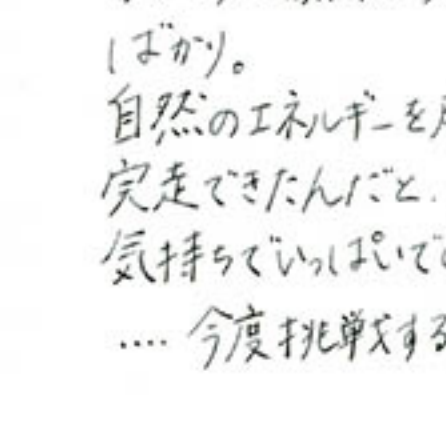 ばかり。
自然のエネルギーを
完走できたんだと
気持ちでいっぱいで
....今度挑戦する